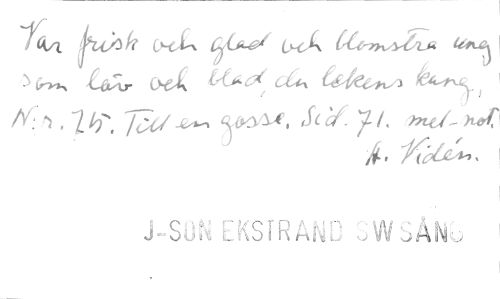 Var frisk och glad och blomstra ung
som löv och blad, du lekens kung,
N:r. 75. Till en gosse. Sid. 71. mel-not.
A. Vidén.
J-SON EKSTRAND SW SÅNG